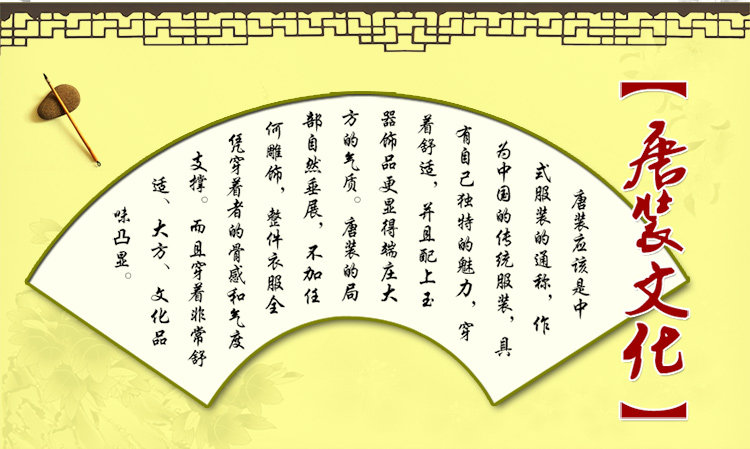 【唐装文化】
唐装应该是中
式服装的通称，作
为中国的传统服装，具
有自己独特的魅力，穿
着舒适，并且配上玉
器饰品更显得端庄大
方的气质。唐装的局
部自然垂展，不加任
何雕饰，整件衣服全
凭穿着者的骨感和气度
支撑。而且穿着非常舒
适、大方、文化品
味凸显。